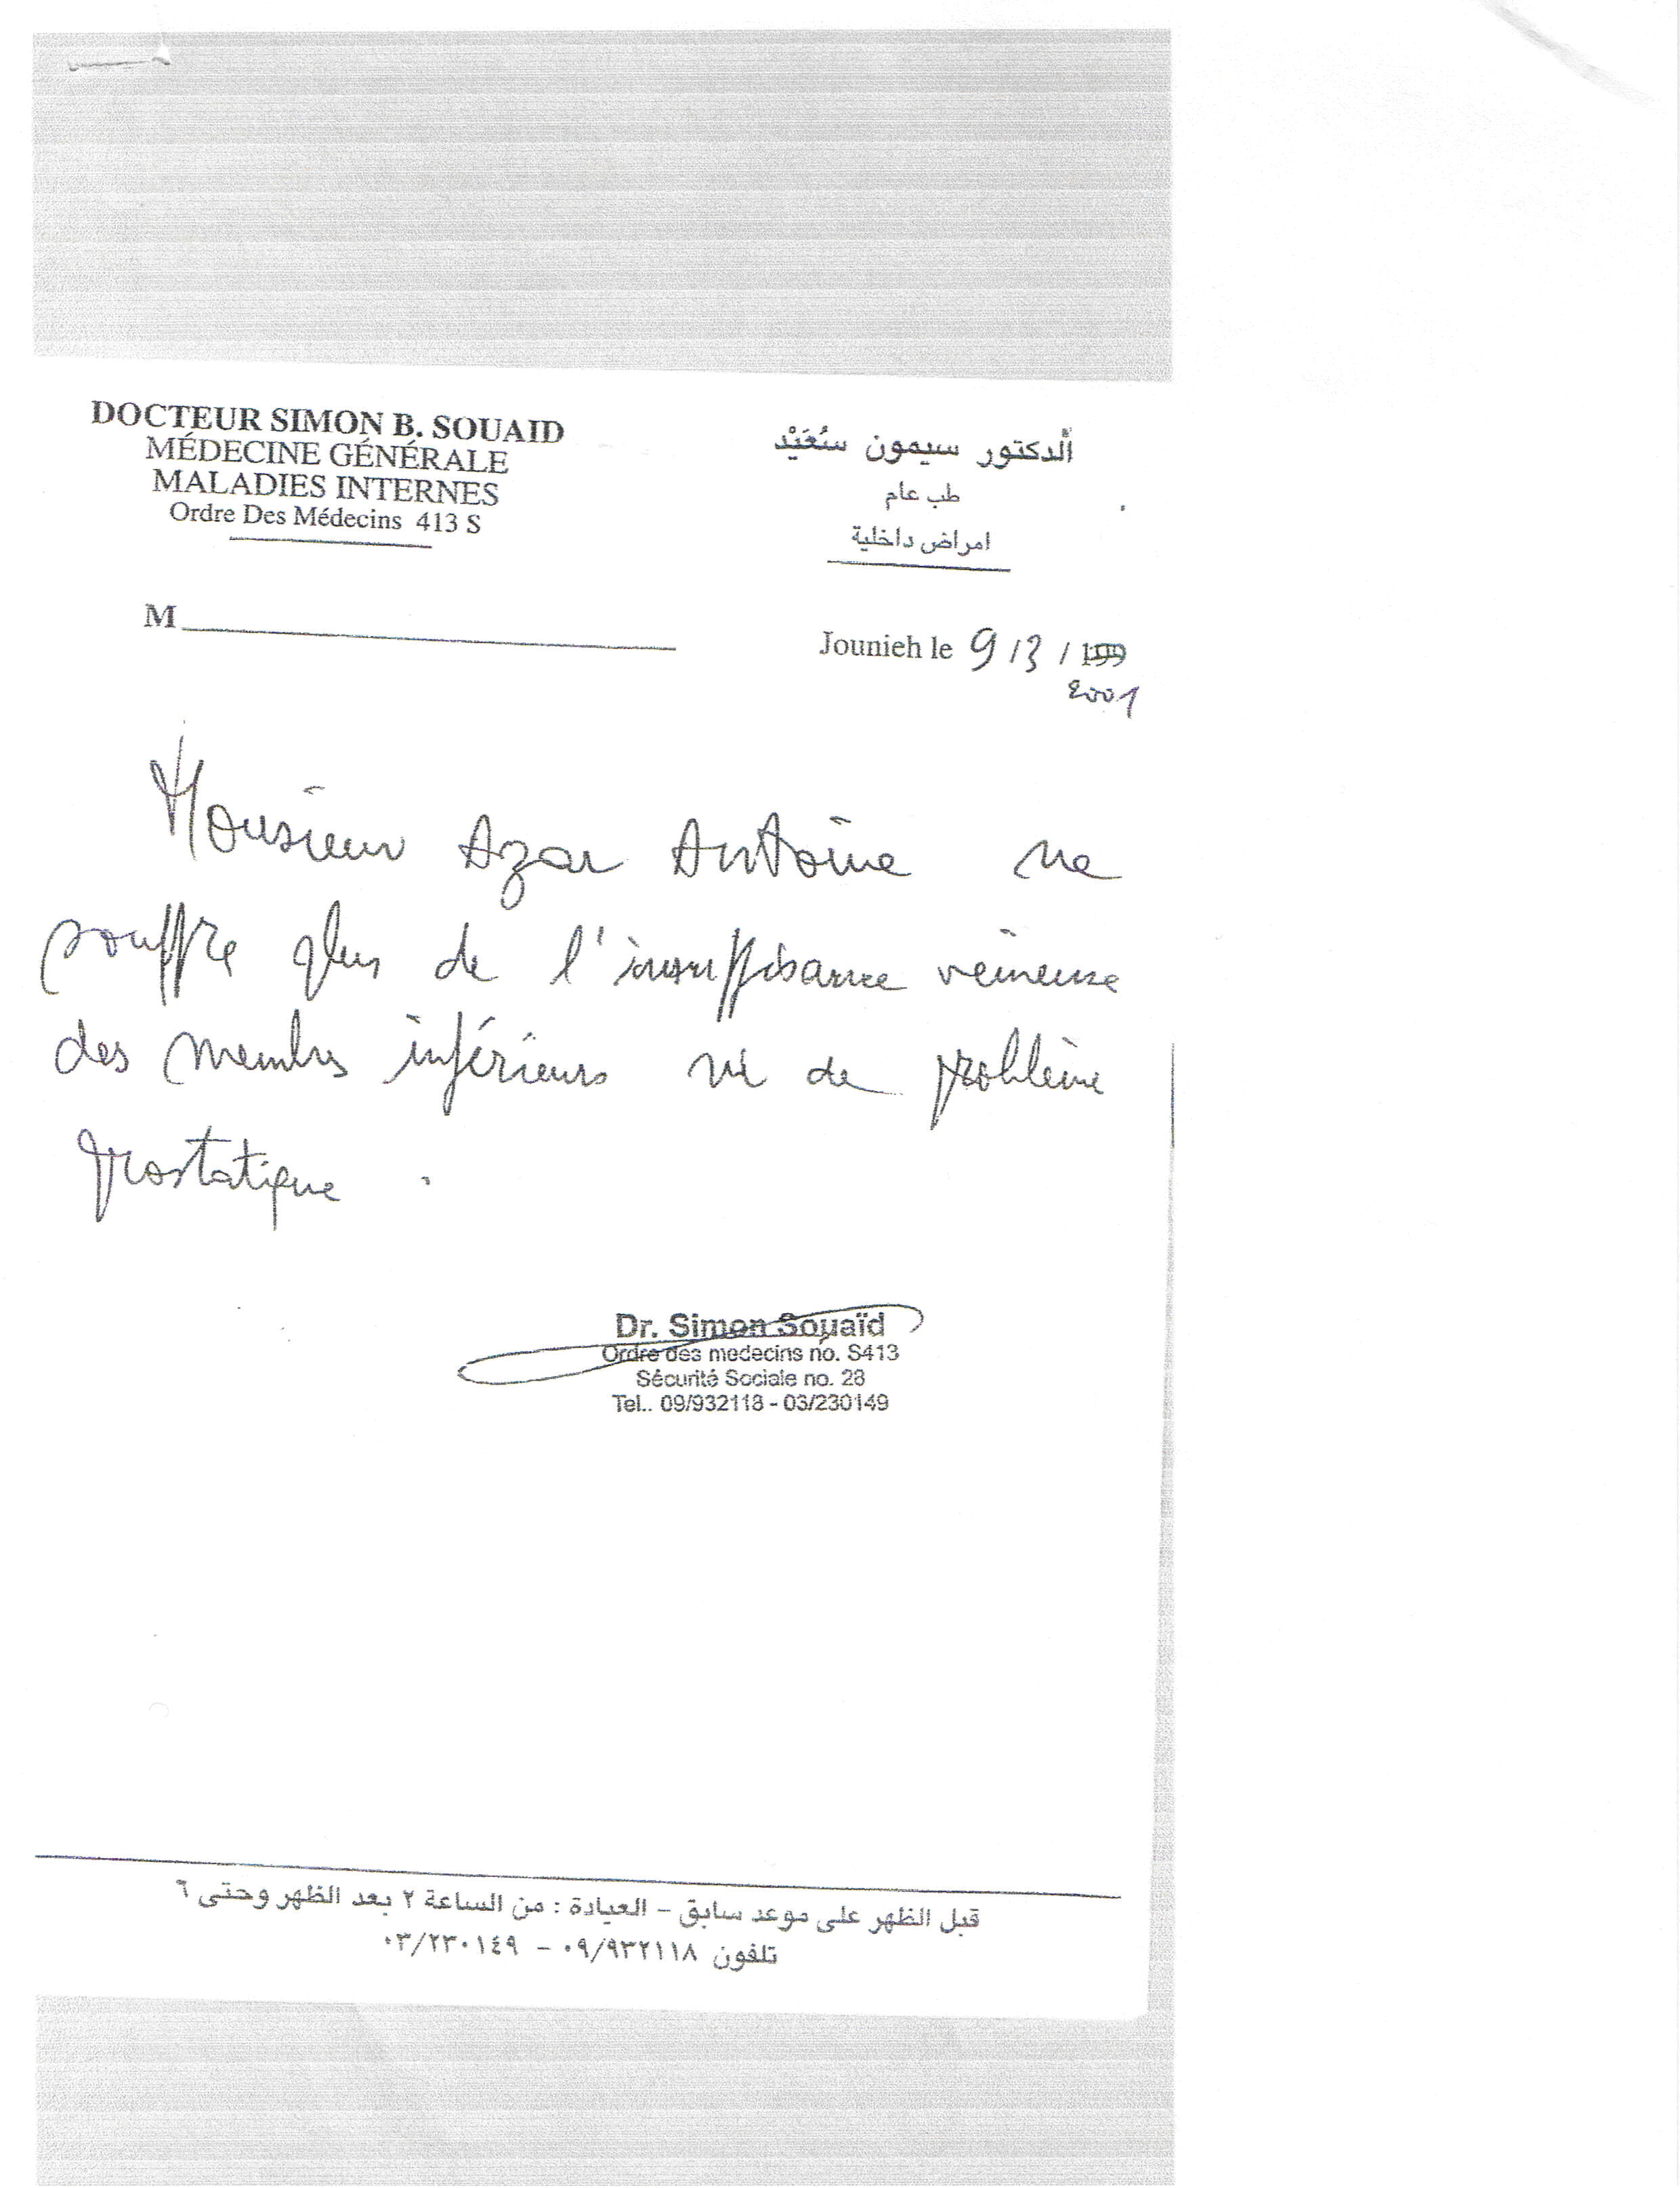 DOCTEUR SIMON B. SOUAID
MÉDECINE GÉNÉRALE
MALADIES INTERNES
Ordre Des Médecins 413 S
ألدكتور سيمون سُعَيْد
طب عام
امراض داخلية
M
Jounieh le 9/3/199
2001
Monsieur Azar Antoine ne
souffre plus de l'insuffisance veineuse
des membres inférieurs ni de problème
prostatique .
Dr. Simon Souaïd
Ordre des medecins no. S413
Sécurité Sociale no. 28
Tel.. 09/932118 - 03/230149
قبل الظهر على موعد سابق – العيادة : من الساعة ٢ بعد الظهر وحتى ٦
تلفون ٠٩/٩٣٢١١٨ – ٠٣/٢٣٠١٤٩